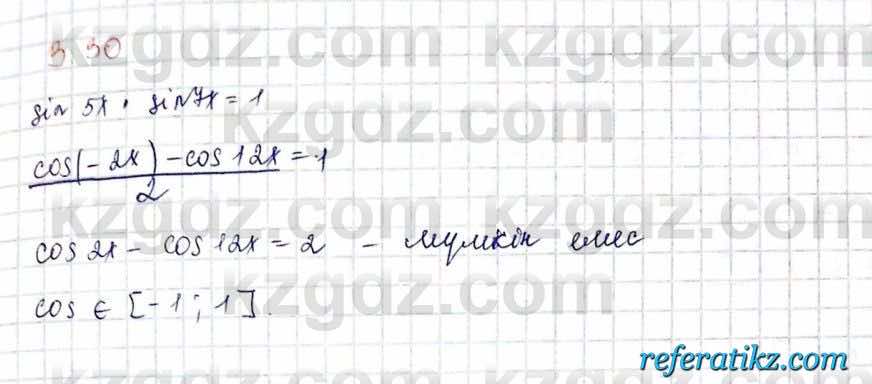 kzgdz.com kzgdz.com
3.30
sin 5x · sin 7x = 1
kzgdz.com
cos(-2x) - cos 12x = 1
2
kzgdz.com kzgdz.com
cos 2x - cos 12x = 2 - мүмкін емес
cos ∈ [-1; 1].
kzgdz.com
referatikz.com